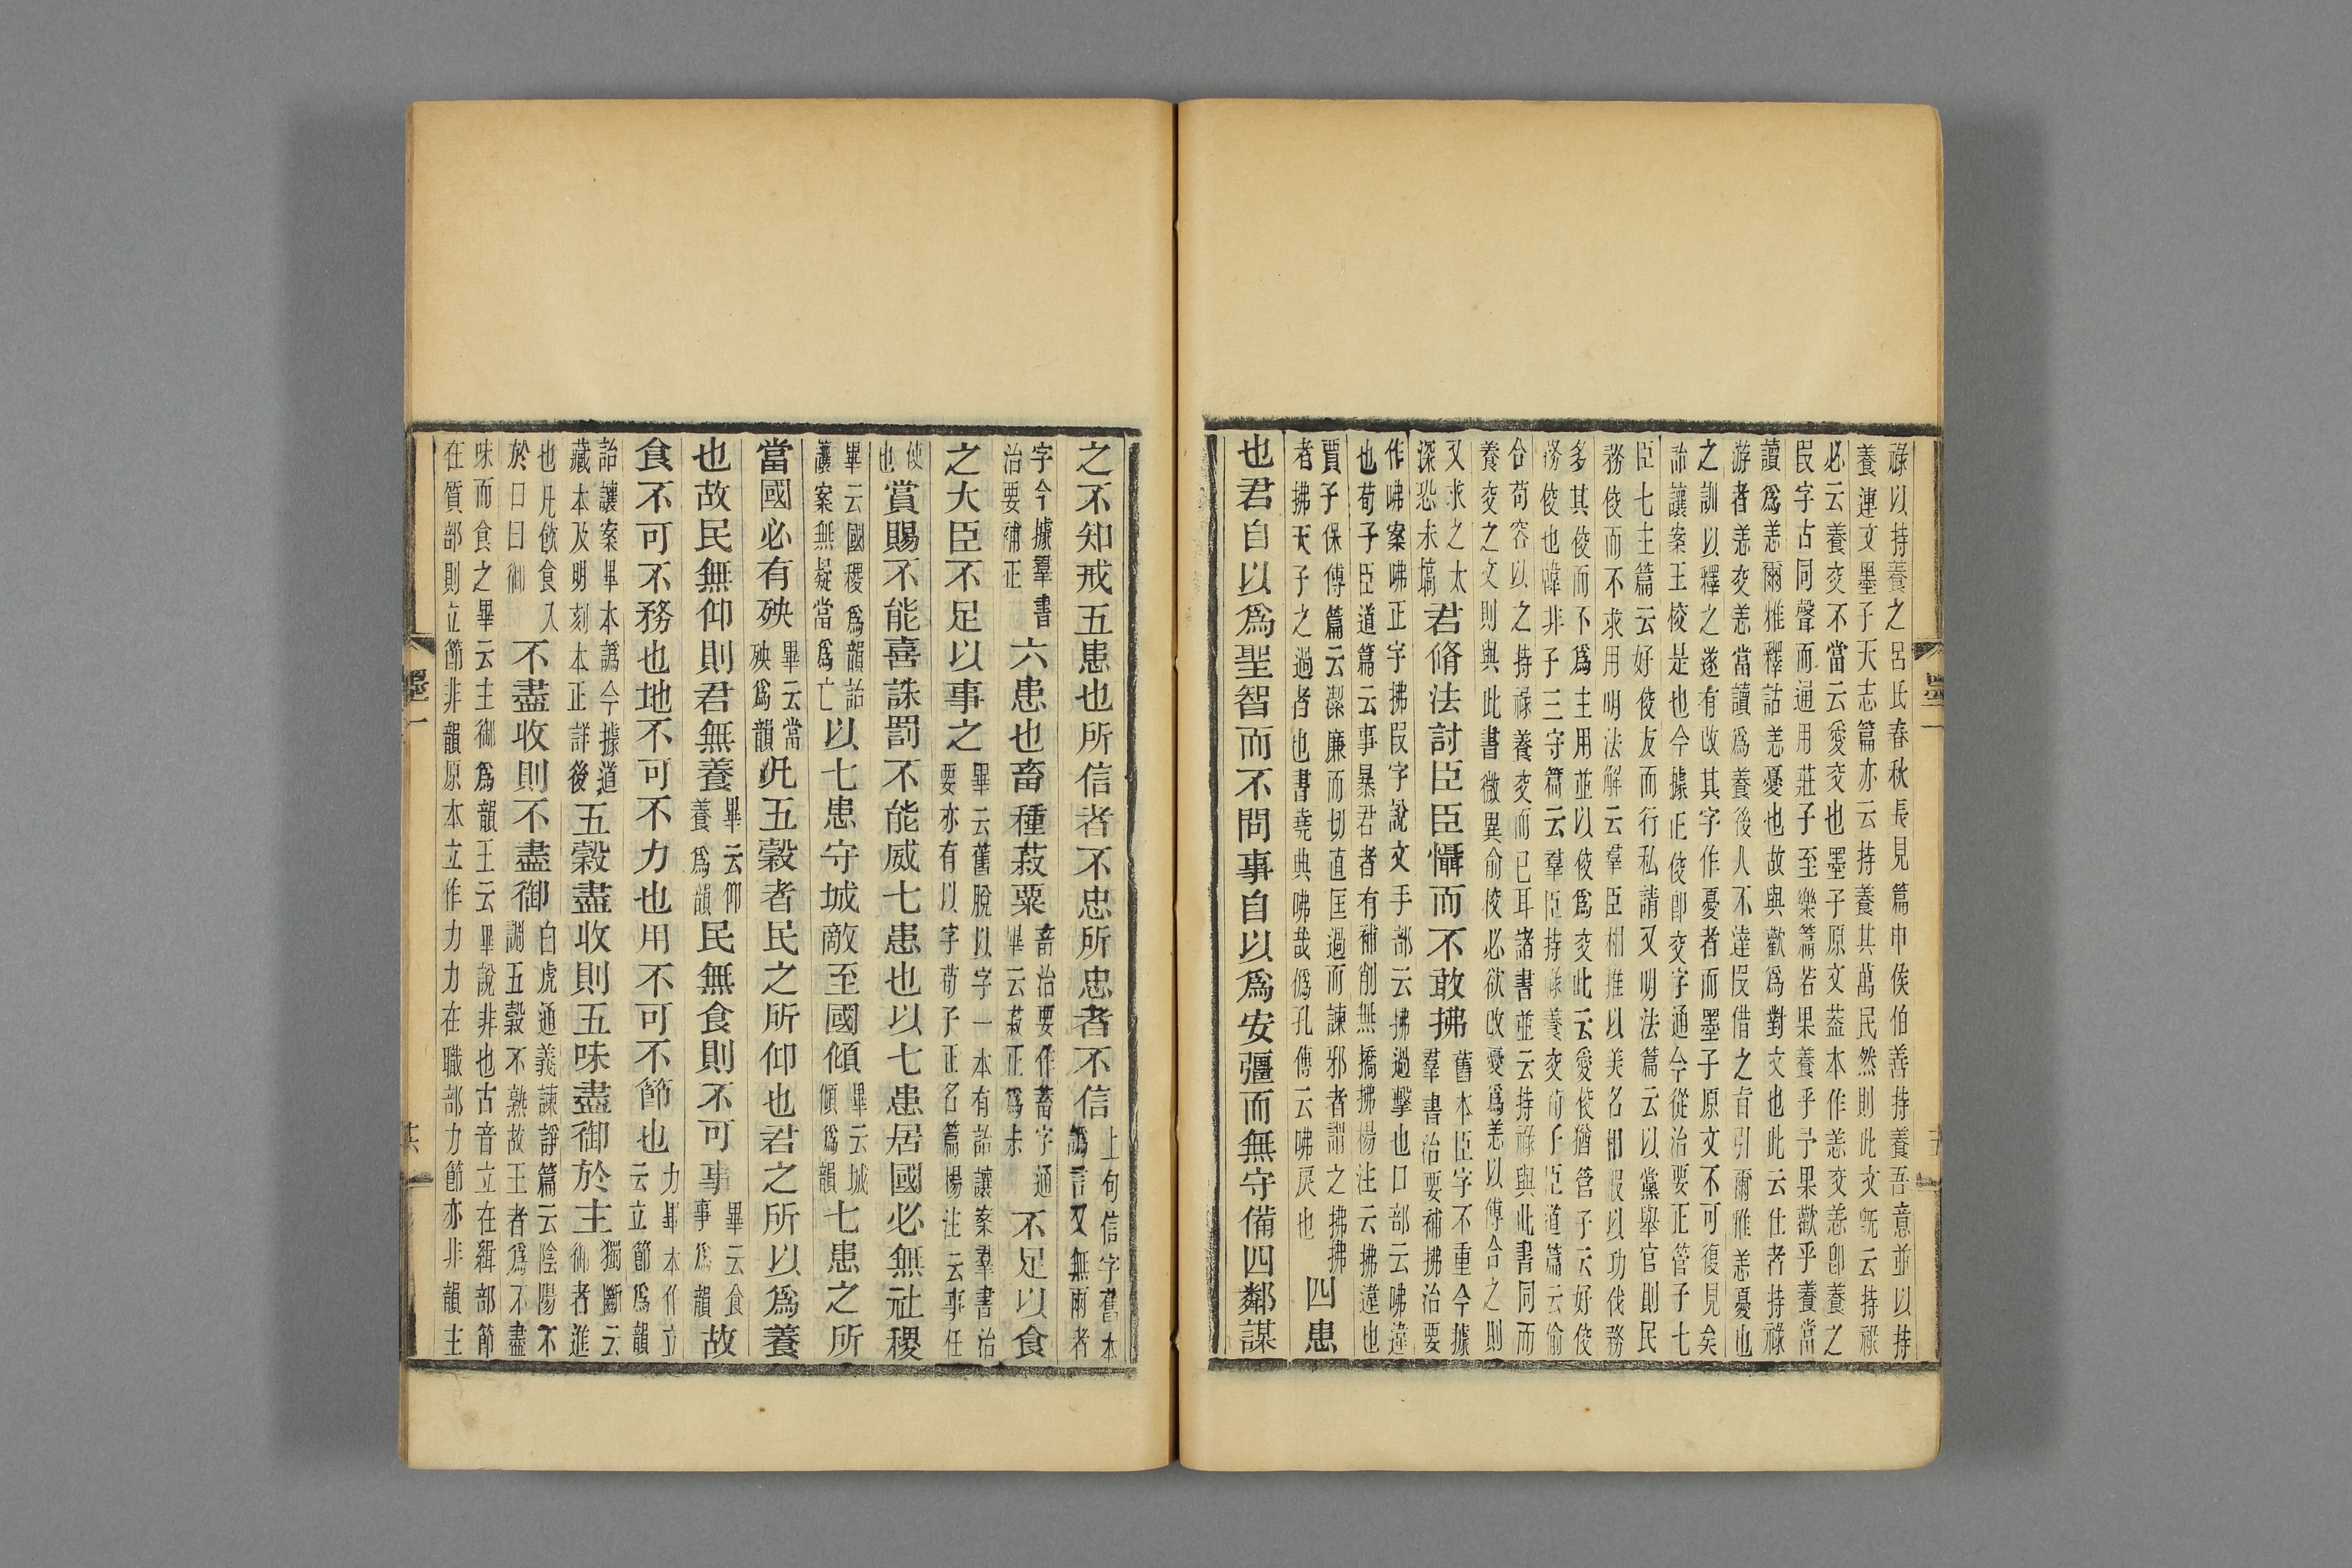 祿以持養之呂氏春秋長見篇申侯伯善持養吾意並以持
養連文墨子天志篇亦云持養其萬民然則此文旣云持祿
必云養交不當云愛交也墨子原文葢本作恙交恙卽養之
叚字古同聲而通用莊子至樂篇若果養乎予果歡乎養當
讀爲恙爾雅釋詁恙憂也故與歡爲對文也此云仕者持祿
游者恙交恙當讀爲養後人不達叚借之旨引爾雅恙憂也
之訓以釋之遂有改其字作憂者而墨子原文不可復見矣
詒讓案王校是也今據正佼卽交字通今從治要正管子七
臣七主篇云好佼友而行私請又明法篇云以黨舉官則民
務佼而不求用明法解云羣臣相推以美名相假以功伐務
多其佼而不爲主用並以佼爲交此云愛佼猶管子云好佼
務佼也韓非子三守篇云羣臣持祿養交荀子臣道篇云偷
合苟容以之持祿養交而已耳諸書並云持祿與此書同而
養交之文則與此書微異俞校必欲改憂爲恙以傅合之則
又求之太深恐未塙君脩法討臣臣懾而不敢拂舊本臣字不重今據羣書治要補拂治要
作咈案咈正字拂叚字說文手部云拂過擊也口部云咈違
也荀子臣道篇云事暴君者有補削無撟拂楊注云拂違也
賈子保傅篇云潔廉而切直匡過而諫邪者謂之拂拂
者拂天子之過者也書堯典咈哉僞孔傳云咈戾也四患
也君自以爲聖智而不問事自以爲安彊而無守備四鄰謀
之不知戒五患也所信者不忠所忠者不信上句信字舊本譌言又無兩者
字今據羣書治要補正六患也畜種菽粟畜治要作蓄字通畢云菽正爲尗不足以食
之大臣不足以事之畢云舊脫以字一本有詒讓案羣書治要亦有以字荀子正名篇楊注云事任
使也賞賜不能喜誅罰不能威七患也以七患居國必無社稷
畢云國稷爲韻詒讓案無疑當爲亡以七患守城敵至國傾畢云城傾爲韻七患之所
當國必有殃畢云當殃爲韻凡五穀者民之所仰也君之所以爲養
也故民無仰則君無養畢云仰養爲韻民無食則不可事畢云食事爲韻故
食不可不務也地不可不力也用不可不節也力畢本作立云立節爲韻
詒讓案畢本譌今據道藏本及明刻本正詳後五穀盡收則五味盡御於主獨斷云御者進
也凡飲食入於口曰御不盡收則不盡御白虎通義諫諍篇云陰陽不調五穀不熟故王者爲不盡
味而食之畢云主御爲韻王云畢說非也古音立在緝部節
在質部則立節非韻原本立作力力在職部力節亦非韻主
墨一